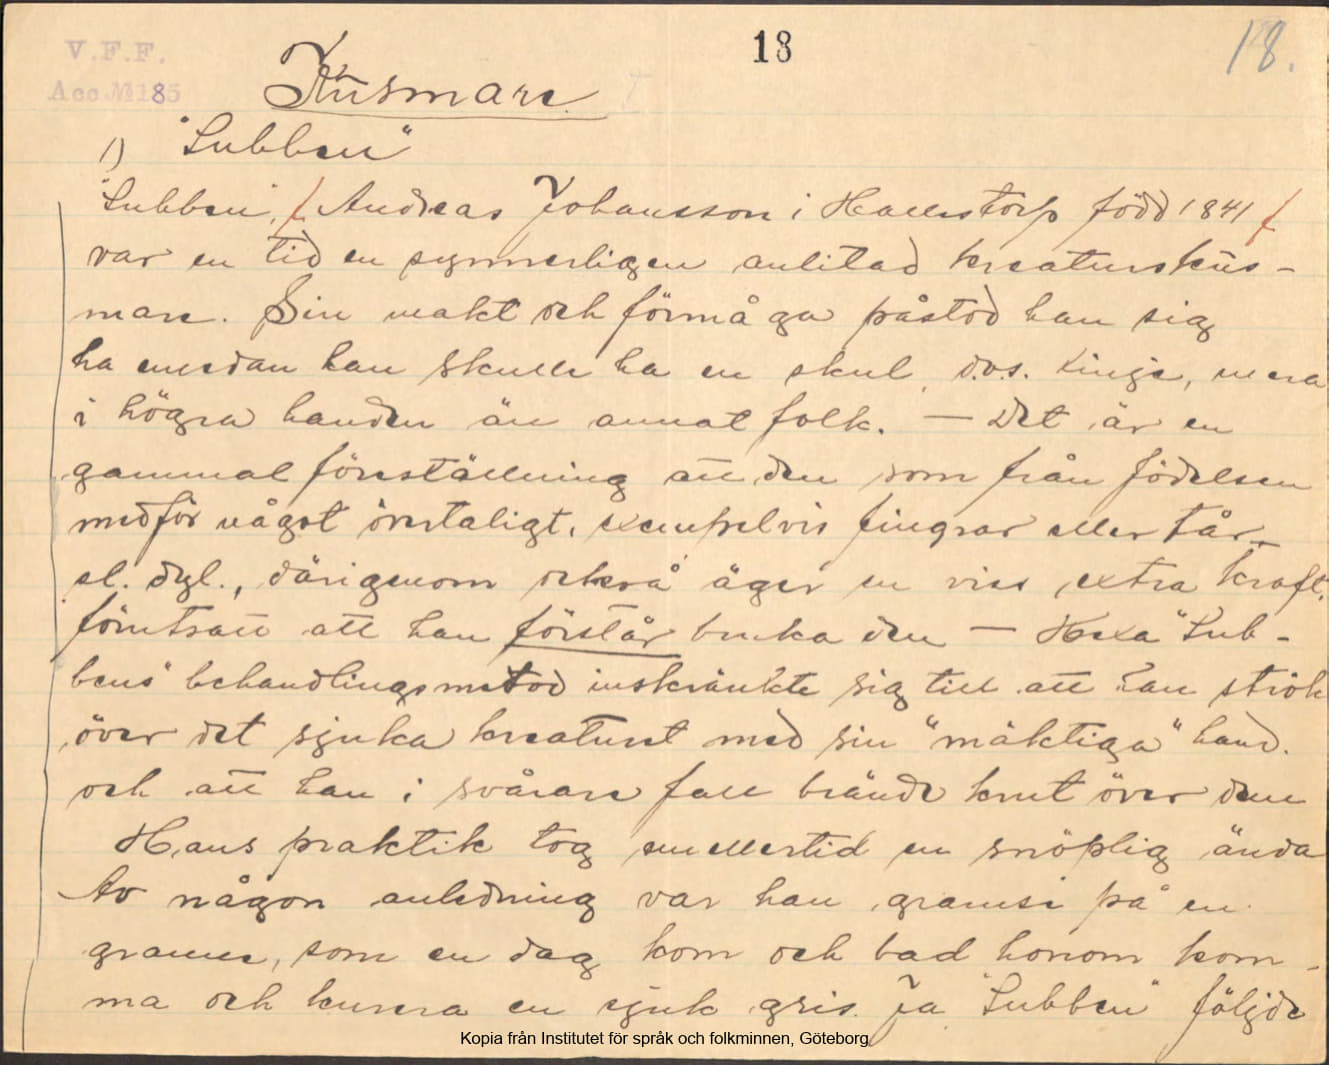 V.F.F.
Acc. № 185
18
18.
Kusmare
1) "Lubben"
"Lubben", Andreas Johansson i Hallestorp född 1841
var en tid en synnerligen anlitad kreaturskus-
mare. Sin makt och förmåga påstod han sig
ha emedan han skulle ha en skul, d.v.s. linje, mera
i högra handen än annat folk. — Det är en
gammal föreställning att den som från födelsen
medför något övertaligt, exempelvis fingrar eller tår
el. dyl., därigenom också äger en viss extra kraft,
förutsatt att han förstår bruka den — "Lub-
bens" behandlingsmetod inskränkte sig till att han strök
över det sjuka kreaturet med sin "mäktiga" hand.
och att han i svårare fall brände krut över dem
Hans praktik tog emellertid en snöplig ända
Av någon anledning var han gramse på en
granne, som en dag kom och bad honom kom-
ma och kurera en sjuk gris. Ja "Lubben" följde
Kopia från Institutet för språk och folkminnen, Göteborg